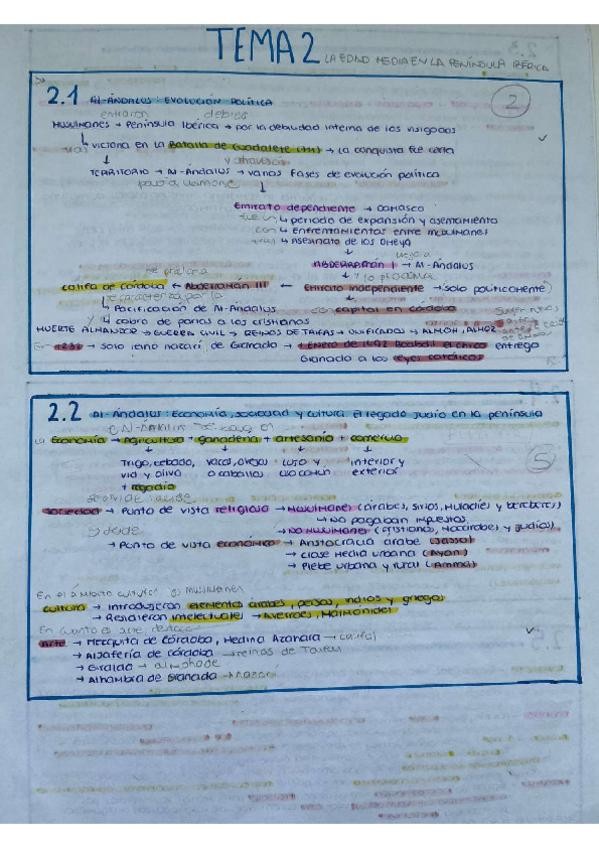 TEMA 2 LA EDAD MEDIA EN LA PENÍNSULA IBÉRICA
2.1 Al-Ándalus: EVOLUCIÓN POLÍTICA
2
entraron debido
MUSULMANES → Península Ibérica → por la debilidad interna de los visigodos
tras ↳ victoria en la Batalla de Guadalete (711) → la conquista fue corta
↓ y atravesó
TERRITORIO → Al-Ándalus → varias fases de evolución política
pasó a llamarse ↓
Emirato dependiente → Damasco
↳ periodo de expansión y asentamiento
con ↳ enfrentamientos entre musulmanes
tras ↳ Asesinato de los Omeya
↓ llegó a
ABDERRAMÁN I → Al-Ándalus
↓ y lo proclamó
se proclama
Califa de Córdoba ← Abderramán III ← Emirato independiente → solo políticamente
se caracteriza por la
↳ Pacificación de Al-Ándalus → capital en córdoba
y ↳ cobro de parias a los cristianos
MUERTE ALMANZOR → GUERRA CIVIL → REINOS DE TAIFAS → UNIFICADOS → ALMOR, ALMOH
→ solo reino nazarí de Granada → 1 ENERO de 1492 Boabdil el chico entrego
Granada a los reyes católicos
2.2 Al-Ándalus: Economía, sociedad y cultura. El legado judío en la península
5
La Economía → agricultura + ganadería + artesanía + comercio
↓ ↓ ↓ ↓
Trigo, cebada, vacas, ovejas lujo y interior y
vid y olivo o caballos uso común exterior
+ regadío
se divide desde
Sociedad → Punto de vista religioso → Musulmanes (árabes, sirios, Muladíes y bereberes)
↳ No pagaban impuestos
→ NO MUSULMANES (cristianos, mozárabes y judíos)
y desde
→ Punto de vista económico → Aristocracia árabe (Jassa)
→ Clase Media urbana (Ayan)
→ Plebe urbana y rural (Amma)
En el ámbito cultural los musulmanes
Cultura → Introdujeron elementos árabes, persas, indios y griegos
→ Residieron intelectuales → Averroes, Maimónides
En cuanto al arte, destaca
Arte → Mezquita de Córdoba, Medina Azahara → califal
→ Aljafería de Córdoba → reinos de Taifas
→ Giralda → almohade
→ Alhambra de Granada → nazarí